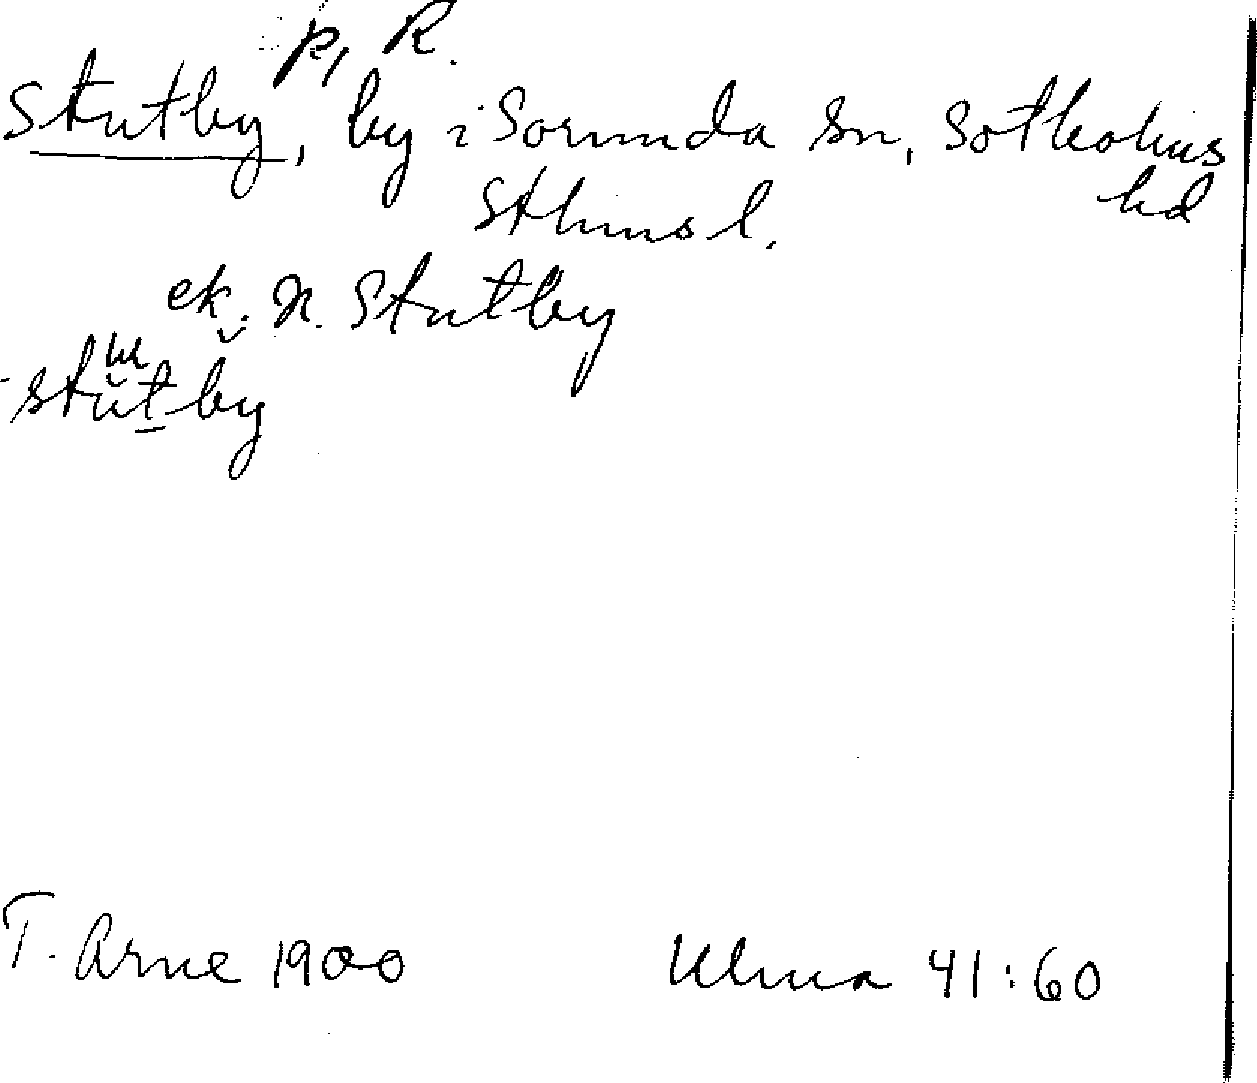 p, R.
Stutby, by i Sorunda sn, Sotholms
hd
Sthms l.
ek. n. Stutby
stŭtby
T. Arne 1900 Ulma 41:60